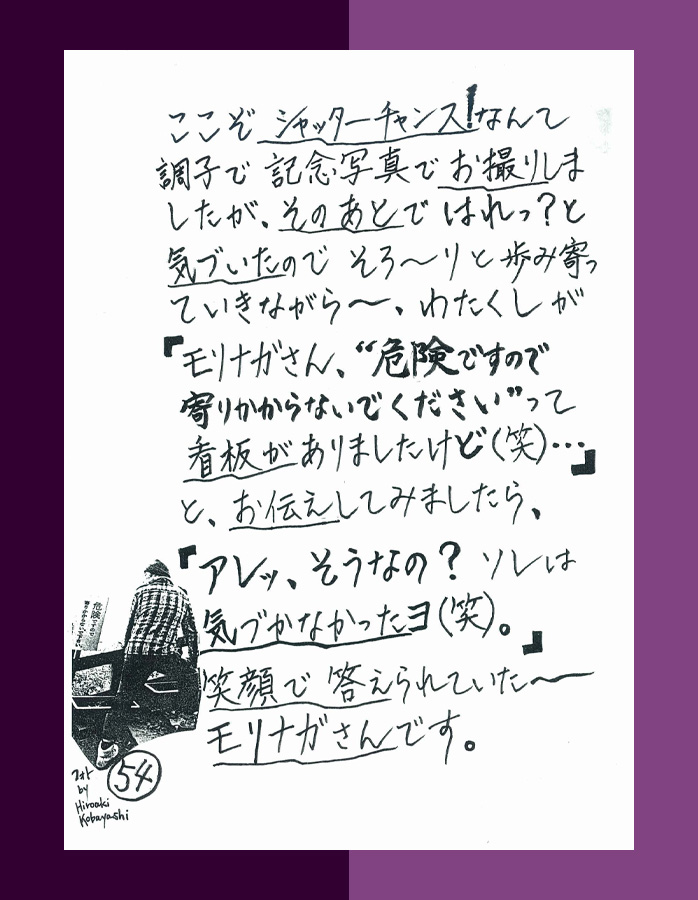 ここぞ シャッターチャンス!なんて
調子で 記念写真で お撮りしま
したが、そのあとで はれっ?と
気づいたので そろ〜りと歩み寄っ
ていきながら〜、わたくしが
『モリナガさん、“危険ですので
寄りかからないでください”って
看板がありましたけど(笑)…』
と、お伝えしてみましたら、
『アレッ、そうなの? ソレは
気づかなかったヨ(笑)。』
笑顔で 答えられていた〜
モリナガさんです。
危険ですので
寄りかからないでください
フォト
by
Hiroaki
Kobayashi
54